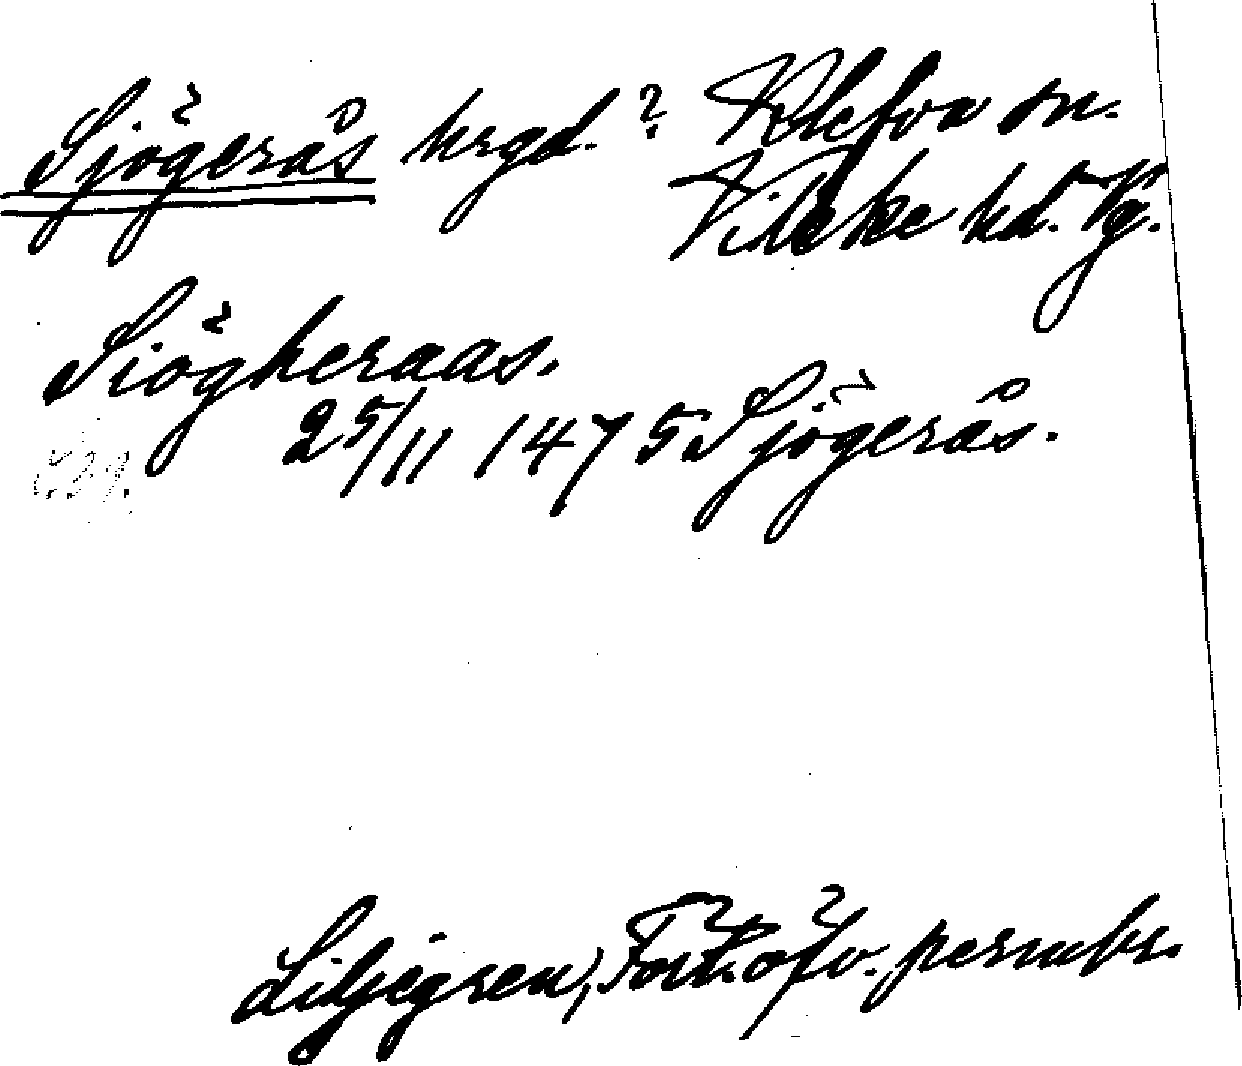 Sjögerås hrgd.? Klefva sn.
Vilske hd. Vg.
Siögheraas.
25/11 1475 Sjögerås.
Liljegren, Fört. öfv. permbr.